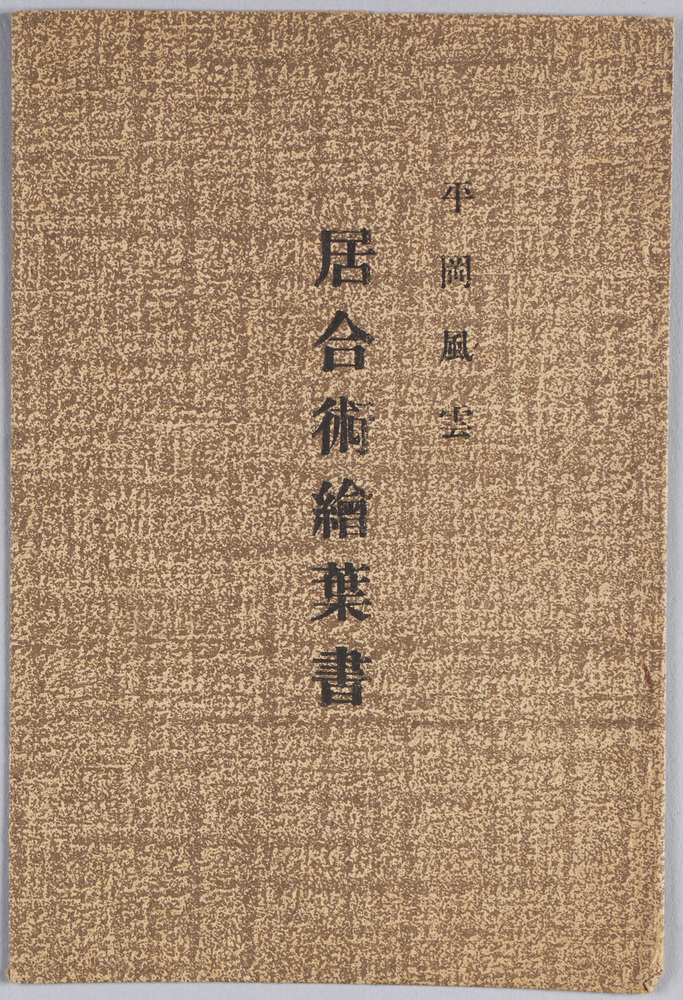 平岡風雲
居合術繪葉書